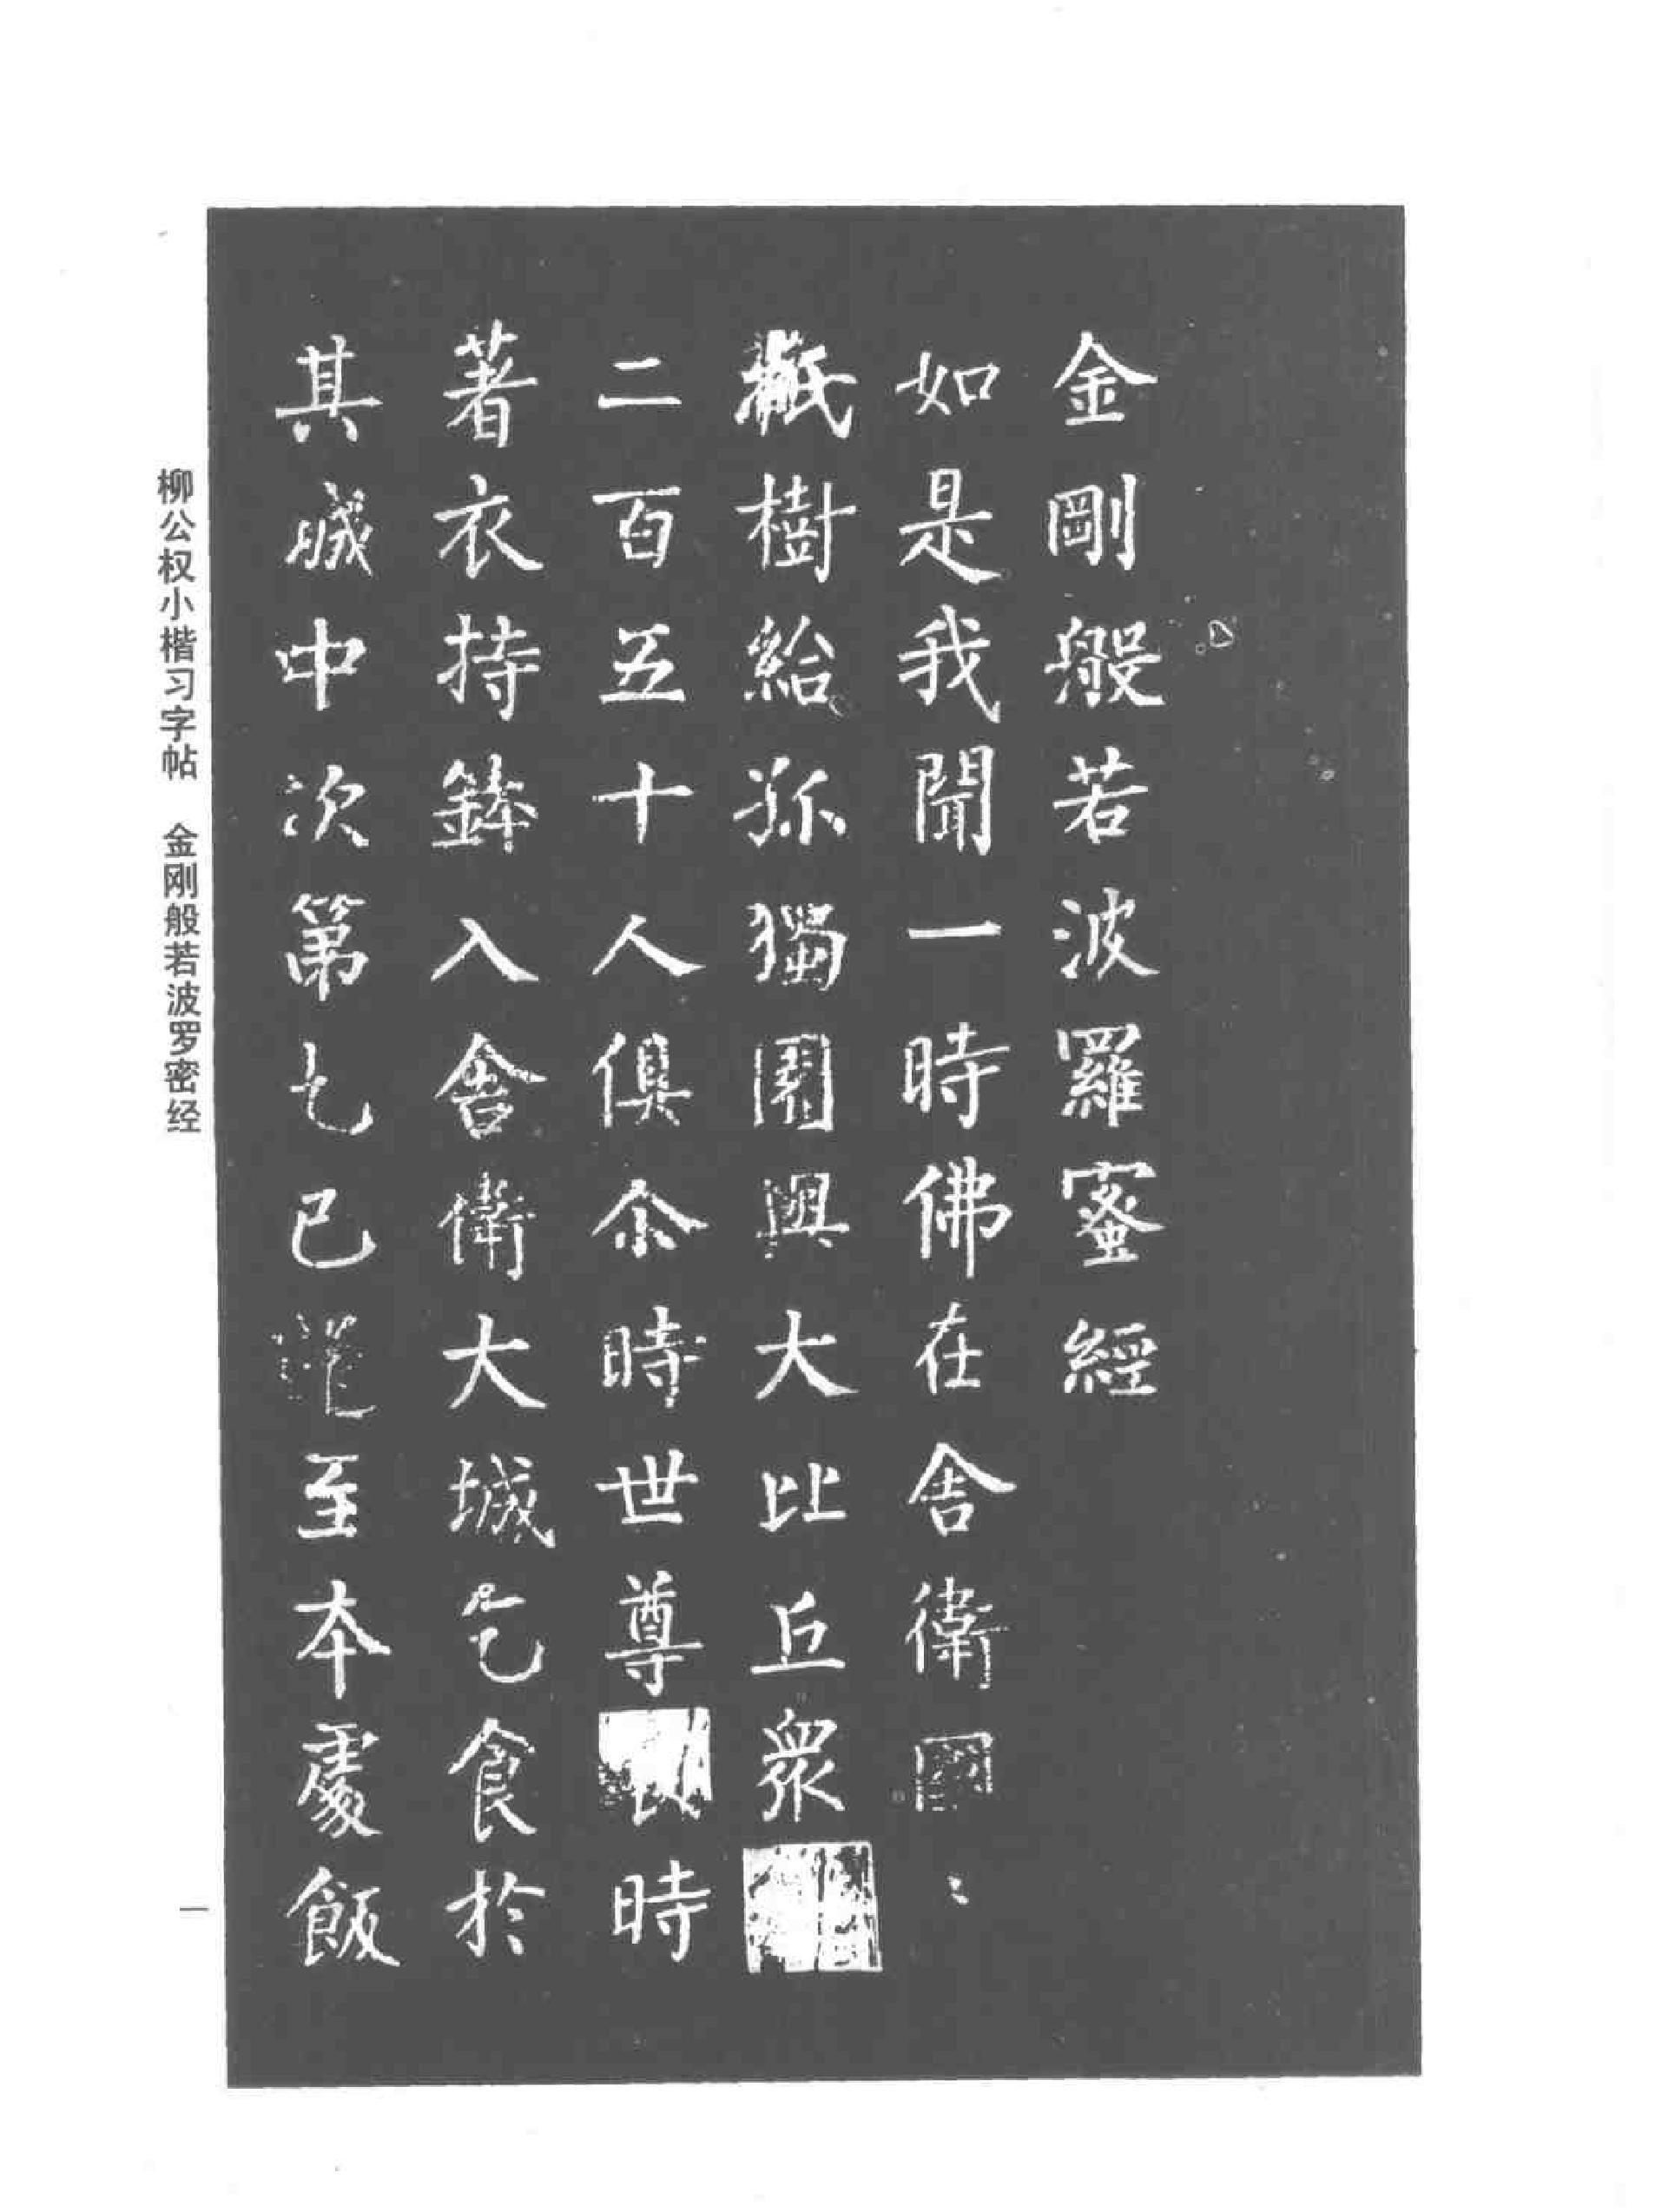 金剛般若波羅蜜經
如是我聞一時佛在舍衛國
祇樹給孤獨園與大比丘眾
二百五十人俱尒時世尊食時
著衣持鉢入舍衛大城乞食於
其城中次第乞已還至本處飯
柳公权小楷习字帖 金刚般若波罗密经
一